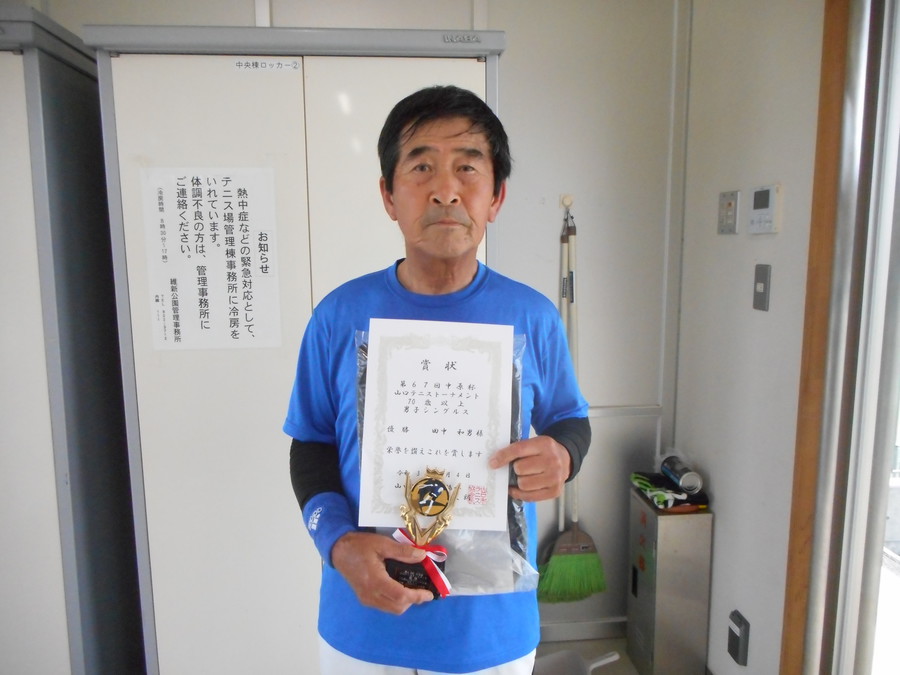 中央棟ロッカー②
お知らせ
熱中症などの緊急対応として、
テニス場管理棟事務所に冷房を
いれています。
体調不良の方は、管理事務所に
ご連絡ください。
維新公園管理事務所
賞状
第67回中原杯
山口テニストーナメント
70歳以上
男子シングルス
優勝 田中 和男様
栄誉を讃えこれを賞します